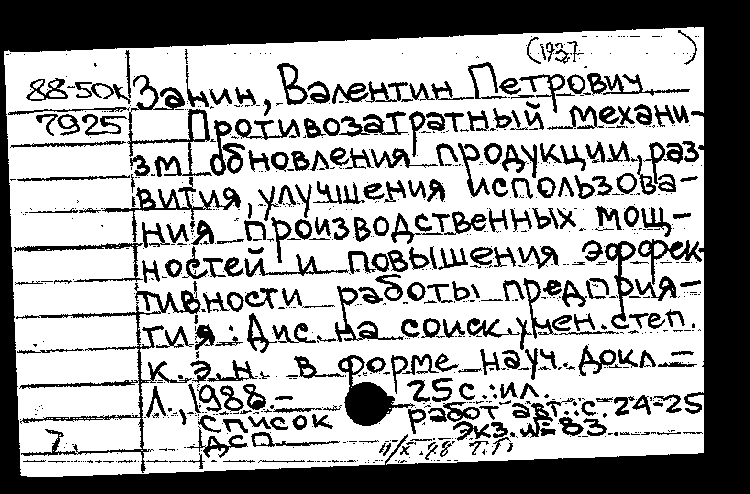 (1937 )
88-50к Занин, Валентин Петрович.
7925 Противозатратный механи-
зм обновления продукции, раз-
вития, улучшения использова-
ния производственных мощ-
ностей и повышения эффек-
тивности работы предприя-
тия: Дис. на соиск. учен. степ.
к.э.н. в форме науч. докл. -
Л., 1988.- 25с.:ил.
список работ авт.: с. 24-25
7. дсп. экз. №83.